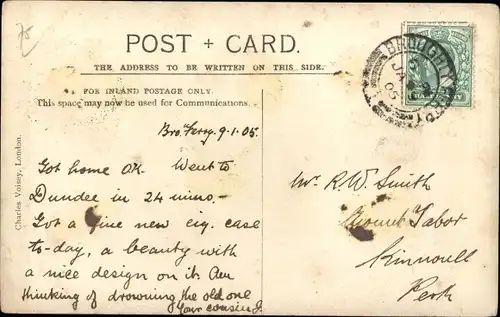 POST + CARD.
THE ADDRESS TO BE WRITTEN ON THIS SIDE.
FOR INLAND POSTAGE ONLY.
This space may now be used for Communications.
Charles Voisey, London.
BROUGHTY FERRY
JA 9
05
Bro. Ferry. 9.1.05.
Got home OK. Went to
Dundee in 24 mins. -
Got a fine new cig. case
to-day, a beauty with
a nice design on it. Am
thinking of drowning the old one
Your cousin J.
Mr. R. W. Smith
Mount Tabor
Kinnoull
Perth